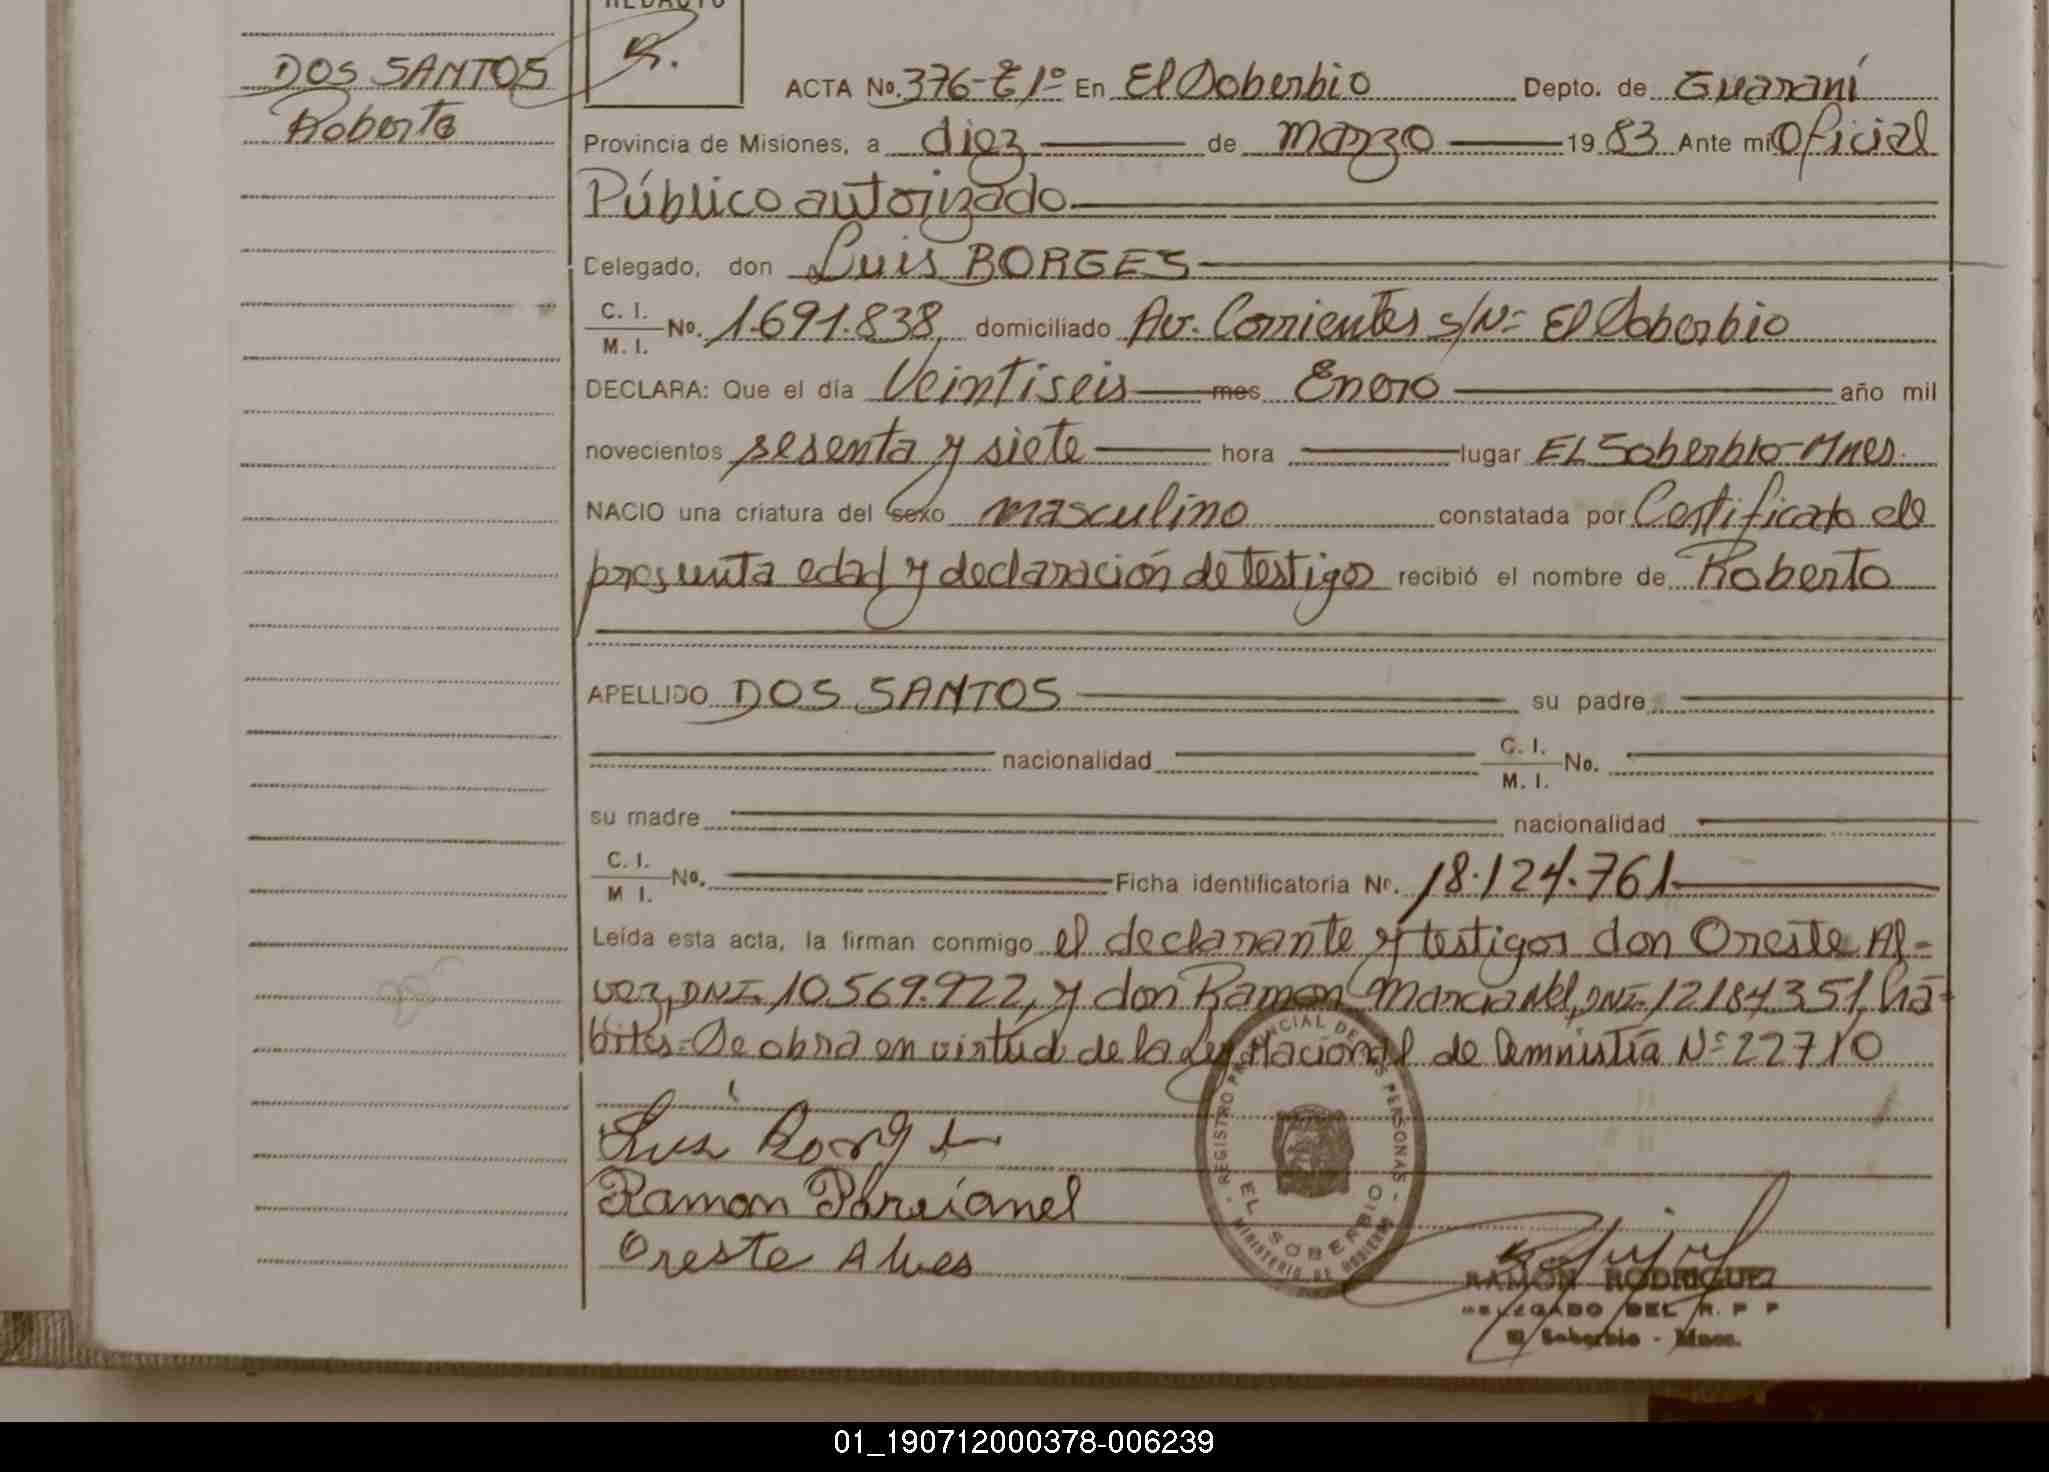 REDACTO
R.
DOS SANTOS
Roberto
ACTA No. 376-T 1º En El Soberbio Depto. de Guaraní
Provincia de Misiones, a diez de Marzo 1983 Ante mi Oficial
Público autorizado
Delegado, don Luis BORGES
C. I.
M. I. No. 1.691.838, domiciliado Av. Corrientes s/Nº El Soberbio
DECLARA: Que el día Veintiseis mes Enero año mil
novecientos sesenta y siete hora lugar EL Soberbio-Mnes.
NACIO una criatura del sexo masculino constatada por Certificado de
presunta edad y declaración de testigos recibió el nombre de Roberto
APELLIDO DOS SANTOS su padre
nacionalidad C. I.
M. I. No.
su madre nacionalidad
C. I.
M I. No. Ficha identificatoria Nº. 18.124.761
Leída esta acta, la firman conmigo el declarante y testigos don Oreste Al=
vez, DNI. 10.569.922, y don Ramon Marcianel, DNI. 12184351, há=
biles. Se obra en virtud de la Ley Nacional de Amnistía Nº 22710
Luis Borges
Ramon Parcianel
Oreste Alves
REGISTRO PROVINCIAL DE LAS PERSONAS
EL SOBERBIO
MINISTERIO DE GOBIERNO
RAMON RODRIGUEZ
DELEGADO DEL R. P P
El Soberbio - Mnes.
01_190712000378-006239